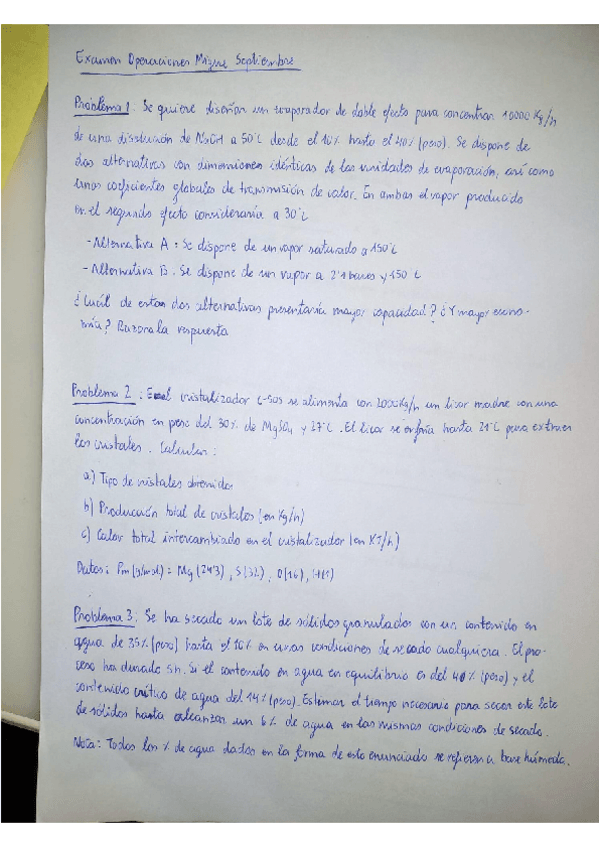 Examen Operaciones Mizue Septiembre
Problema 1. Se quiere diseñar un evaporador de doble efecto para concentrar 10000 Kg/h
de una disolución de NaOH a 50°C desde el 10% hasta el 40% (peso). Se dispone de
dos alternativas con dimensiones idénticas de las unidades de evaporación, así como
unos coeficientes globales de transmisión de calor. En ambas el vapor producido
en el segundo efecto condensaría a 30°C
- Alternativa A: Se dispone de un vapor saturado a 150°C
- Alternativa B. Se dispone de un vapor a 2'1 bares y 150°C
¿Cuál de estas dos alternativas presentaría mayor capacidad? ¿Y mayor econo-
mía? Razona la respuesta
Problema 2: cristalizador C-505 se alimenta con 2000 Kg/h un licor madre con una
concentración en peso del 30% de MgSO4 y 27°C. El licor se enfría hasta 21°C para extraer
los cristales. Calcular:
a) Tipo de cristales obtenidos
b) Producción total de cristales (en Kg/h)
c) Calor total intercambiado en el cristalizador (en KJ/h)
Datos: Pm (g/mol): Mg (24'3), S (32), O (16), H (1)
Problema 3: Se ha secado un lote de sólidos granulados con un contenido en
agua de 35% (peso) hasta el 10% en unas condiciones de secado cualquiera. El pro-
ceso ha durado 5h. Si el contenido en agua en equilibrio es del 4% (peso) y el
contenido crítico de agua del 14% (peso). Estimar el tiempo necesario para secar este lote
de sólidos hasta alcanzar un 6% de agua en las mismas condiciones de secado.
Nota: Todos los % de agua dados en la forma de este enunciado se refieren a base húmeda.